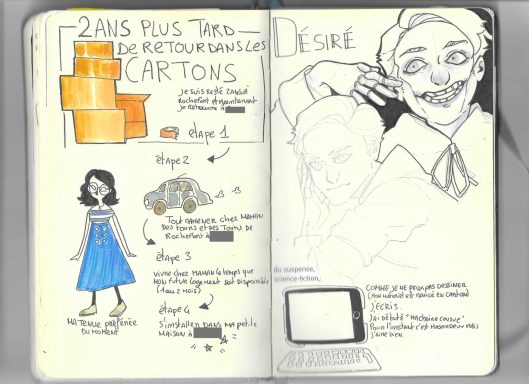 2 ANS PLUS TARD
DE RETOUR DANS LES
CARTONS
Je suis resté 2 ans à
Rochefort et maintenant
je retourne à
étape 1
étape 2
Tout ramener chez MAMAN
Des tours et des Tours de
Rochefort à
étape 3
vivre chez MAMAN le temps que
mon futur logement soit disponible
(1 ou 2 mois)
étape 4
s'installer DANS MA petite
MAISON à
MA TENUE PRÉFÉRÉE
DU MOMENT
DÉSIRÉ
du suspense,
science-fiction,
COMME JE NE PEUX PAS DESSINER
(mon matériel est rangé en carton)
J'ÉCRIS..
J'ai débuté "MAChoire cousue"
Pour l'instant c'est HASARDEUX MAIS
j'aime bien.